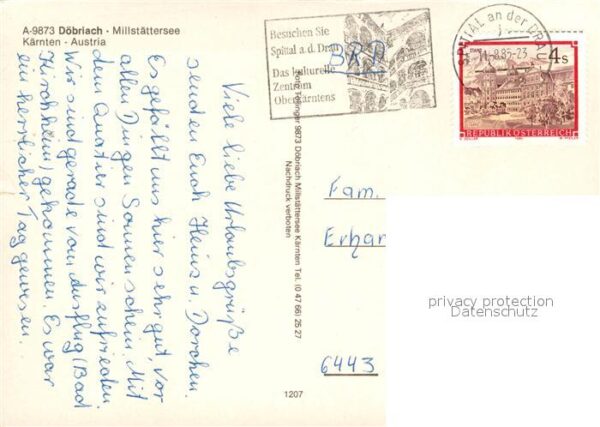 A-9873 Döbriach · Millstättersee
Kärnten - Austria
Besuchen Sie
Spittal a.d. Drau
Das kulturelle
Zentrum
Oberkärntens
BRD
SPITTAL an der DRAU
14.-8.85-23
4s
REPUBLIK ÖSTERREICH
Viele liebe Urlaubsgrüße
senden Euch Heinz u. Dorchen.
Es gefällt uns hier sehr gut, vor
allen Dingen Sonnenschein. Mit
dem Quartier sind wir zufrieden.
Wir sind gerade vom Ausflug (Bad
Kirchheim) gekommen. Es war
ein herrlicher Tag gewesen.
Tellinger 9873 Döbriach Millstättersee Kärnten Tel. (0 47 66) 25 27
Nachdruck verboten
Fam.
Erhar
6443
1207
privacy protection
Datenschutz